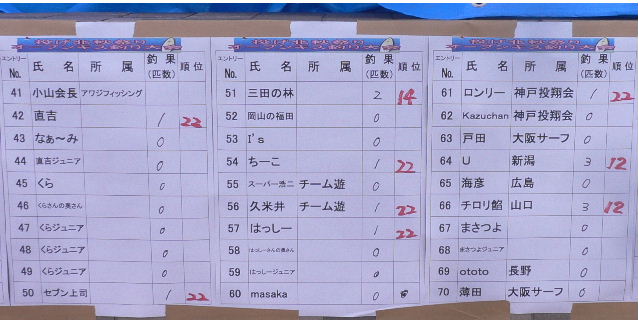 エントリー No. 氏名 所属 釣果(匹数) 順位
41 小山会長 アワジフィッシング
42 直吉 1 22
43 なぁ～み 0
44 直吉ジュニア 0
45 くら 0
46 くらさんの奥さん 0
47 くらジュニア 0
48 くらジュニア 0
49 くらジュニア 0
50 セブン上司 1 22
エントリー No. 氏名 所属 釣果(匹数) 順位
51 三田の林 2 14
52 岡山の福田 0
53 I's 0
54 ちーこ 1 22
55 スーパー浩二 チーム遊 0
56 久米井 チーム遊 1 22
57 はっしー 1 22
58 はっしーさんの奥さん 0
59 はっしージュニア 0
60 masaka 0
エントリー No. 氏名 所属 釣果(匹数) 順位
61 ロンリー 神戸投翔会 1 22
62 Kazuchan 神戸投翔会 0
63 戸田 大阪サーフ 0
64 U 新潟 3 12
65 海彦 広島 0
66 チロリ餡 山口 3 12
67 まさつよ 0
68 まさつよジュニア 0
69 ototo 長野 0
70 薄田 大阪サーフ 0